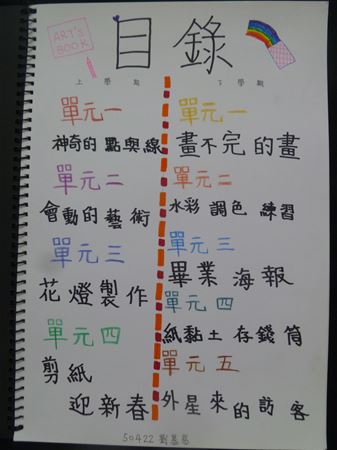 ART's
BOOK
目錄
上學期
單元一
神奇的 點與線
單元二
會動的藝術
單元三
花燈製作
單元四
剪紙
迎新春
下學期
單元一
畫不完的畫
單元二
水彩 調色 練習
單元三
畢業海報
單元四
紙黏土 存錢筒
單元五
外星來的訪客
50422 劉